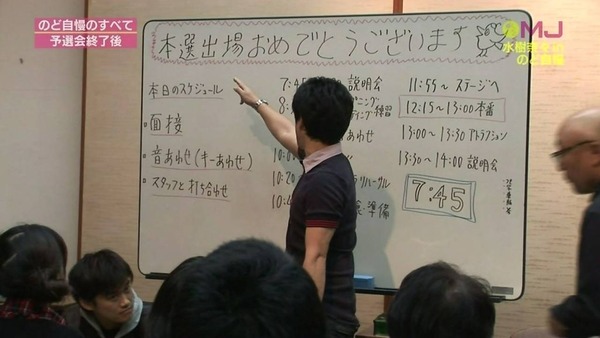 のど自慢のすべて
予選会終了後
MJ
本選出場おめでとうございます
本日のスケジュール
・面接
・音あわせ(キーあわせ)
・スタッフと打ち合わせ
7:45 説明会
8:
練習
あわせ
10:0
10:20 リハーサル
10:4 準備
11:55～ ステージへ
12:15～13:00 本番
13:00～13:30 アトラクション
13:30～14:00 説明会
7:45